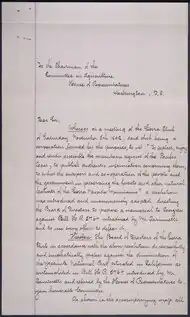 To the Chairman of the
Committee on Agriculture,
House of Representatives
Washington, D.C.
Dear Sir,
Whereas at a meeting of the Sierra Club
of Saturday November 5th 1892, said club being a
corporation formed for the purposes, to wit "To explore, enjoy
and render accessible the mountain regions of the Pacific
Coast; to publish authentic information concerning them;
to enlist the support and cooperation of the people and
the government in preserving the forests and other natural
features of the Sierra Nevada Mountains" a resolution
was introduced and unanimously adopted directing
the Board of Directors to prepare a memorial to Congress
against Bill H.R. 5764 introduced by Mr Caminetti
and to use every effort to defeat it,
Therefore The Board of Directors of the Sierra
Club in accordance with the above resolution do respectfully
and emphatically protest against the diminution of
the Yosemite National Park situated in California as
contemplated in Bill H.R. 5764 introduced by Mr
Caminetti and referred by the House of Representatives to
your honorable Committee.
As shown in the accompanying map all